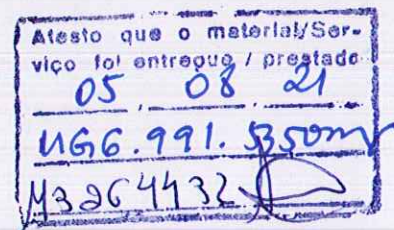 Atesto que o material/Ser-
viço foi entregue / prestado
05 08 21
UG6.991.
M3264432